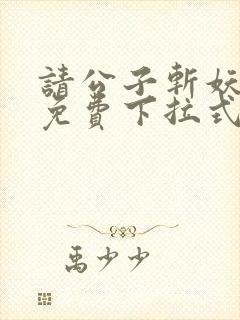 請公子斬妖
免費下拉式
禹少少